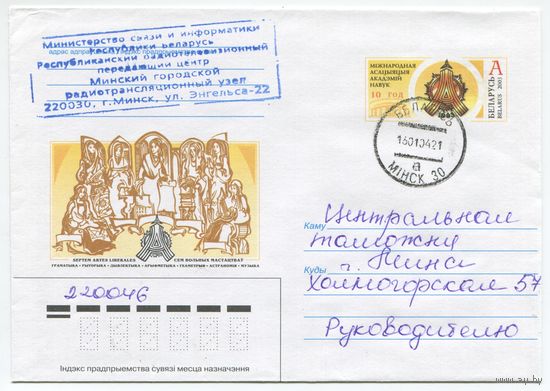 Министерство связи и информатики
Республики Беларусь
Республиканский радиотелевизионный
передающий центр
Минский городской
радиотрансляционный узел
220030, г.Минск, ул. Энгельса-22
МІЖНАРОДНАЯ
АСАЦЫЯЦЫЯ
АКАДЭМІЙ
НАВУК
10 год
1993
А
БЕЛАРУСЬ
BELARUS 2003
БЕЛАРУСЬ
13010421
а
МІНСК 30
SEPTEM ARTES LIBERALES
СЕМ ВОЛЬНЫХ МАСТАЦТВАЎ
ГРАМАТЫКА • РЫТОРЫКА • ДЫЯЛЕКТЫКА • АРЫФМЕТЫКА • ГЕАМЕТРЫЯ • АСТРАНОМІЯ • МУЗЫКА
Каму
Центральная
таможня
Куды
г. Минск
Холмогорская 57
Руководителю
220046
Індэкс прадпрыемства сувязі месца назначэння
www.ay.by